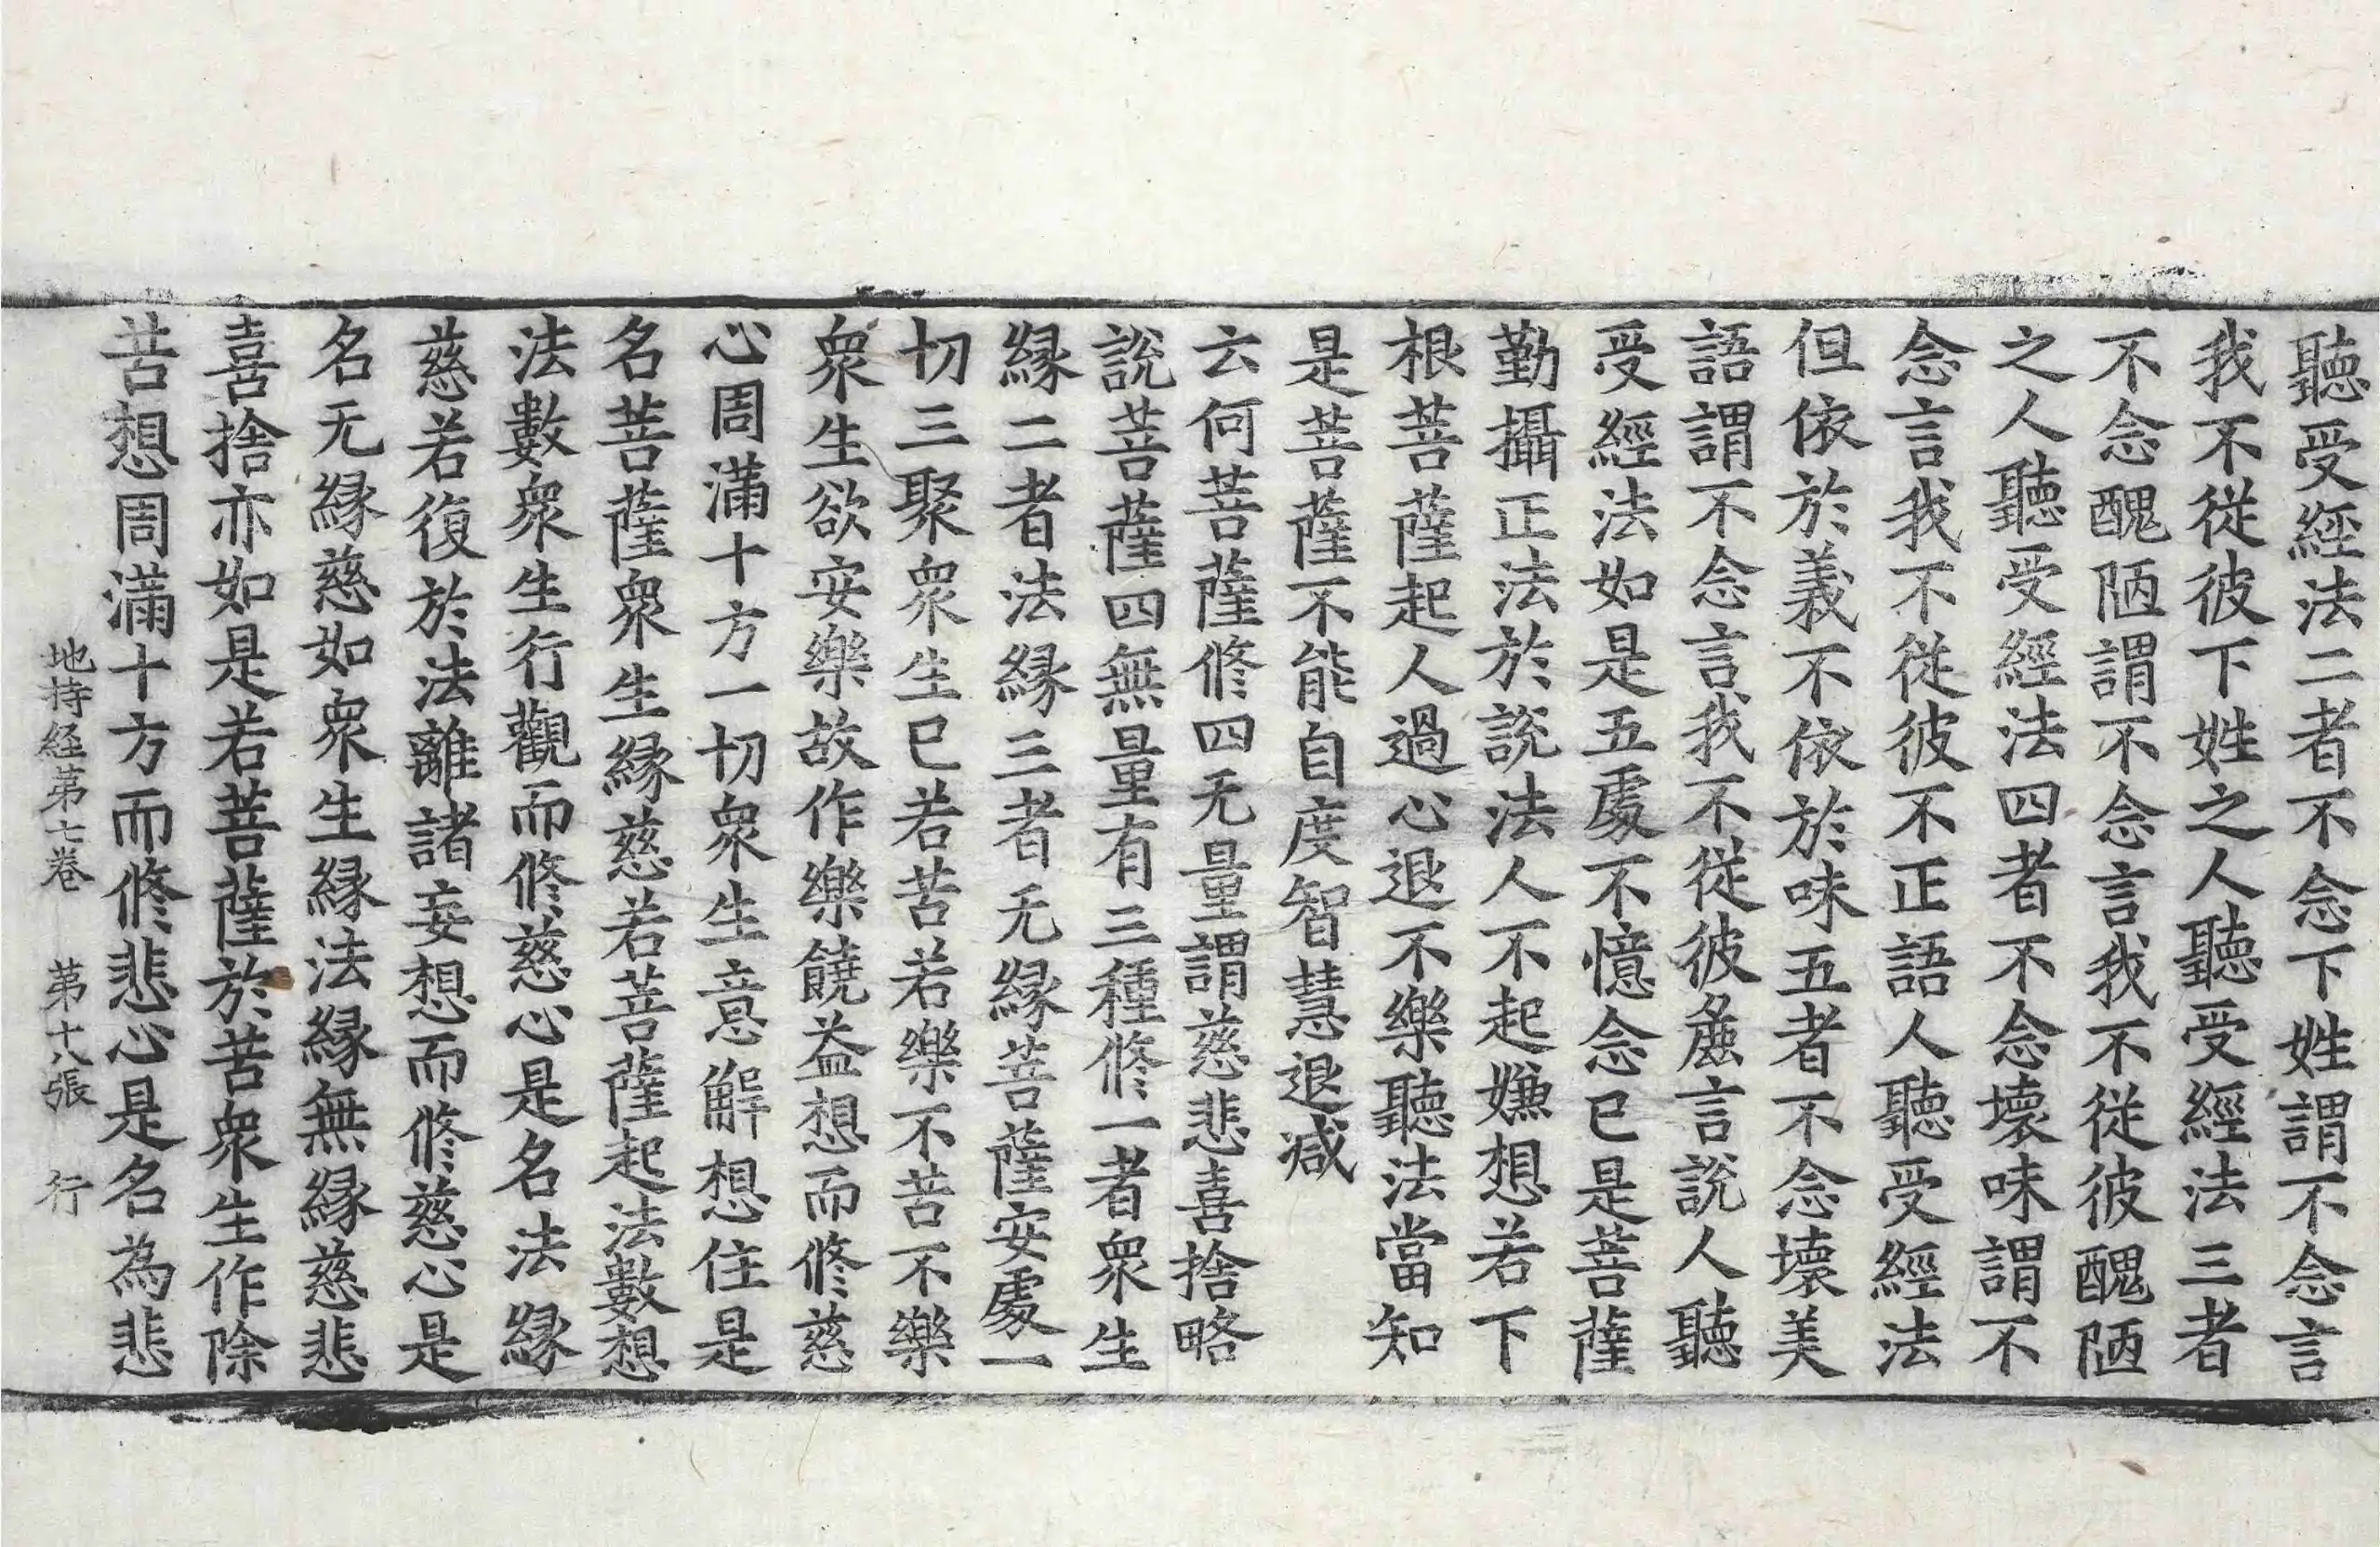 聽受經法二者不念下姓謂不念言
我不從彼下姓之人聽受經法三者
不念醜陋謂不念言我不從彼醜陋
之人聽受經法四者不念壞味謂不
念言我不從彼不正語人聽受經法
但依於義不依於味五者不念壞美
語謂不念言我不從彼麁言說人聽
受經法如是五處不憶念已是菩薩
勤攝正法於說法人不起嫌想若下
根菩薩起人過心退不樂聽法當知
是菩薩不能自度智慧退減
云何菩薩修四无量謂慈悲喜捨略
說菩薩四無量有三種修一者衆生
緣二者法緣三者无緣菩薩安處一
切三聚衆生已若苦若樂不苦不樂
衆生欲安樂故作樂饒益想而修慈
心周滿十方一切衆生意解想住是
名菩薩衆生緣慈若菩薩起法數想
法數衆生行觀而修慈心是名法緣
慈若復於法離諸妄想而修慈心是
名无緣慈如衆生緣法緣無緣慈悲
喜捨亦如是若菩薩於苦衆生作除
苦想周滿十方而修悲心是名為悲
地持経第七卷 第十八張 行